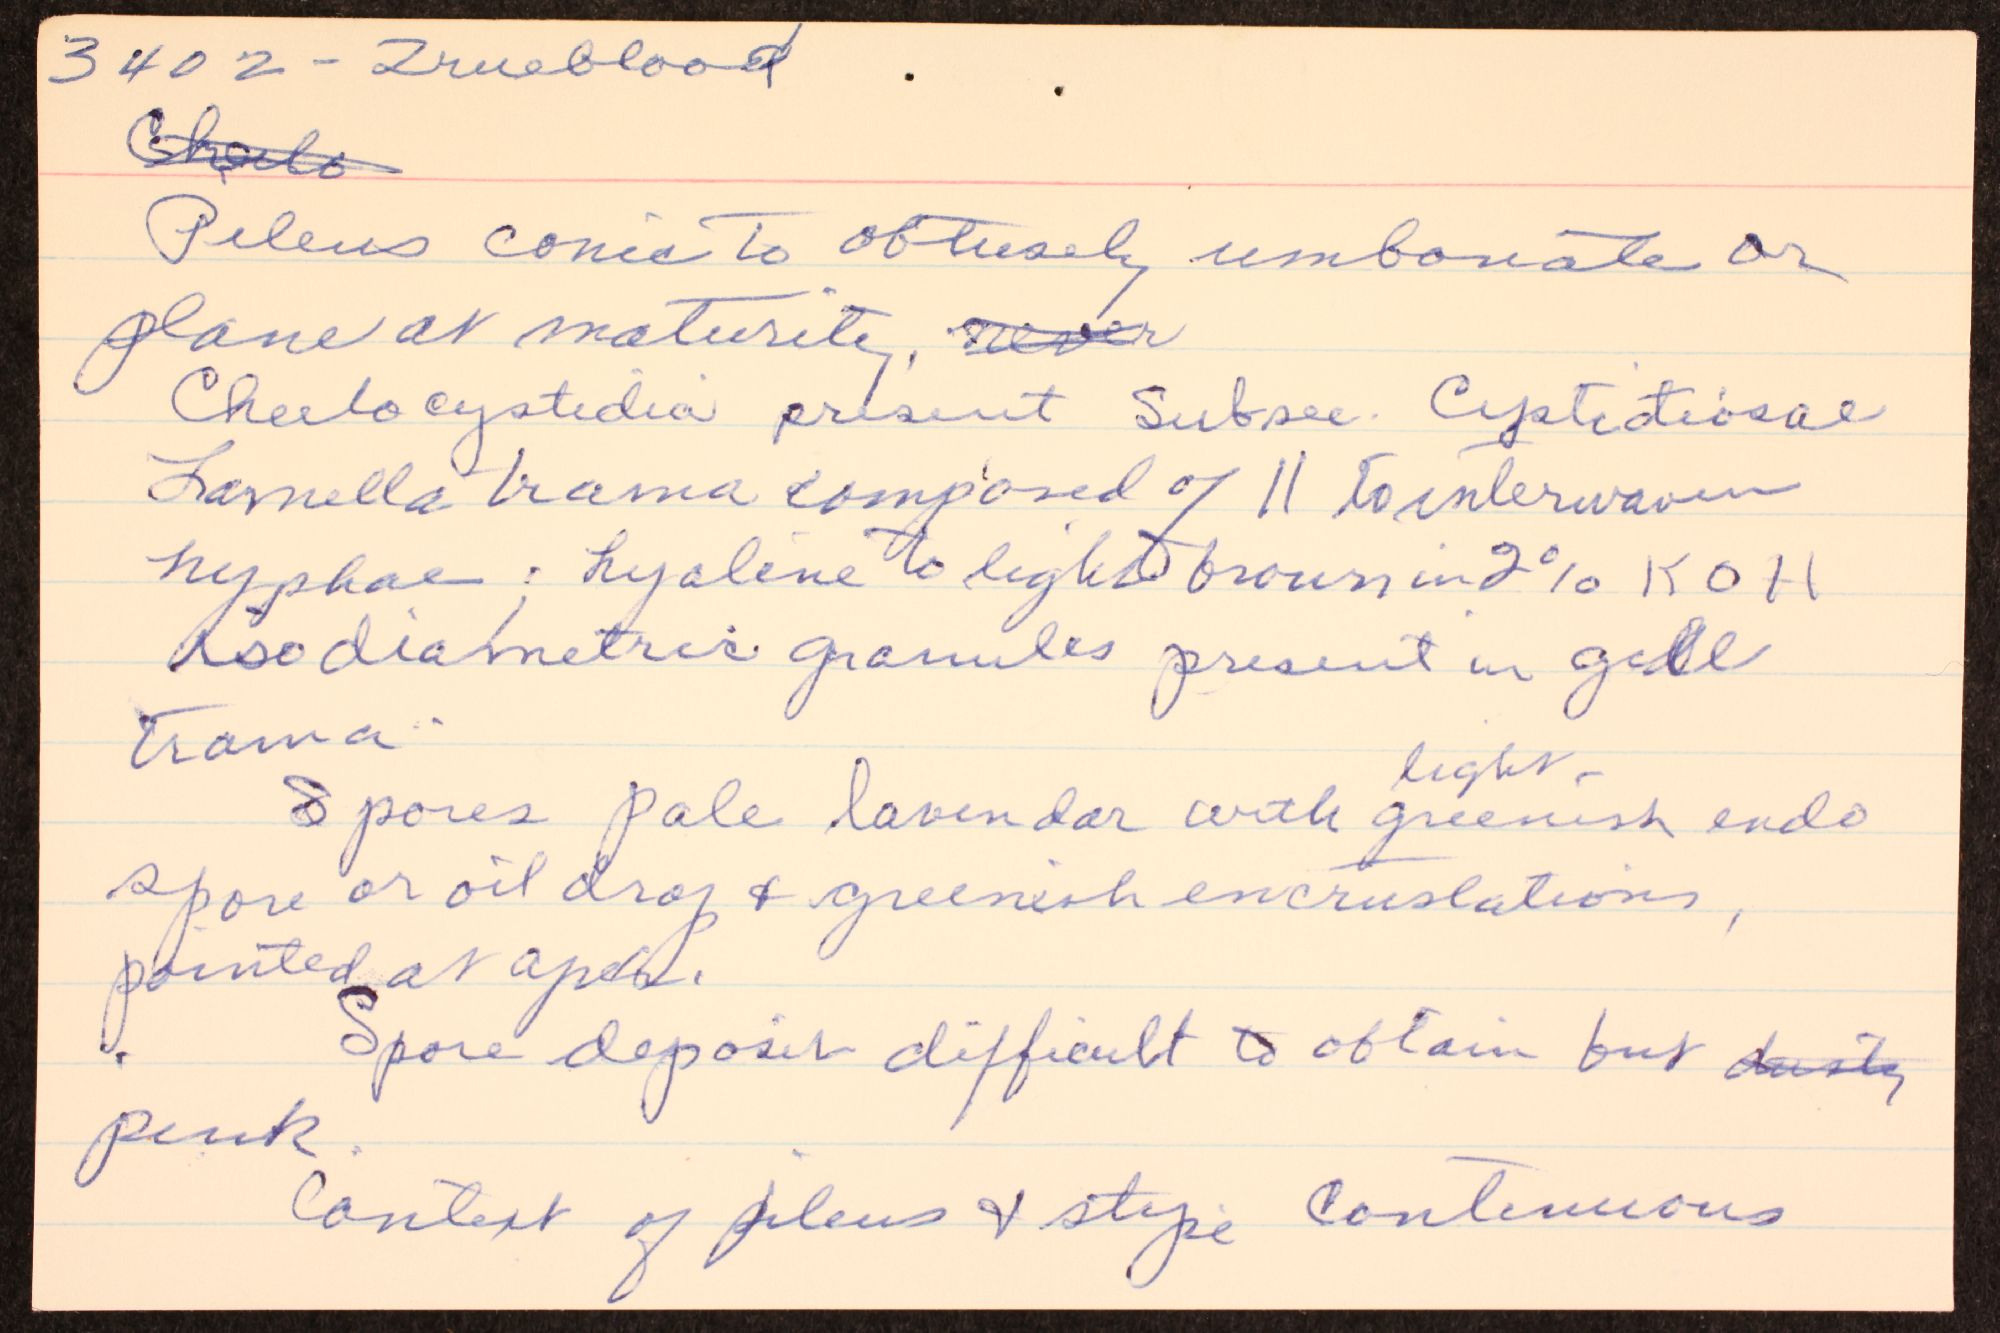 3402 - Trueblood
Cheilo
Pileus conic to obtusely umbonate or
plane at maturity, never
Cheilocystidia present Subsec. Cystidiosae
Lamella trama composed of || to interwoven
hyphae; hyaline to light brown in 2% KOH
isodiametric granules present in gill
trama
light-
Spores pale lavendar with greenish endo
spore or oil drop & greenish encrustations,
pointed at apex.
Spore deposit difficult to obtain but dusty
pink.
Context of pileus & stipe continuous